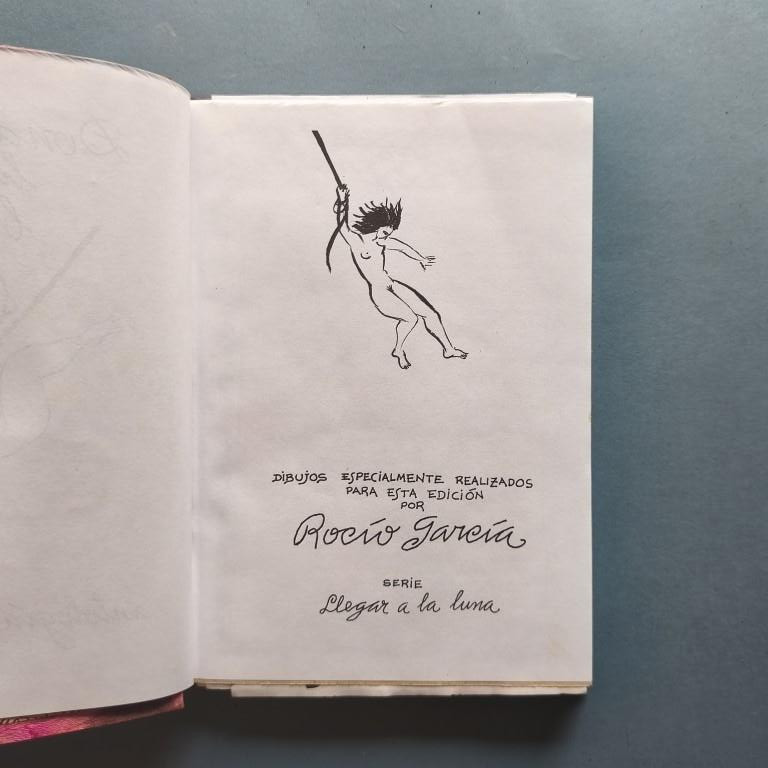 DIBUJOS ESPECIALMENTE REALIZADOS
PARA ESTA EDICIÓN
POR
Rocío García
SERIE
Llegar a la luna